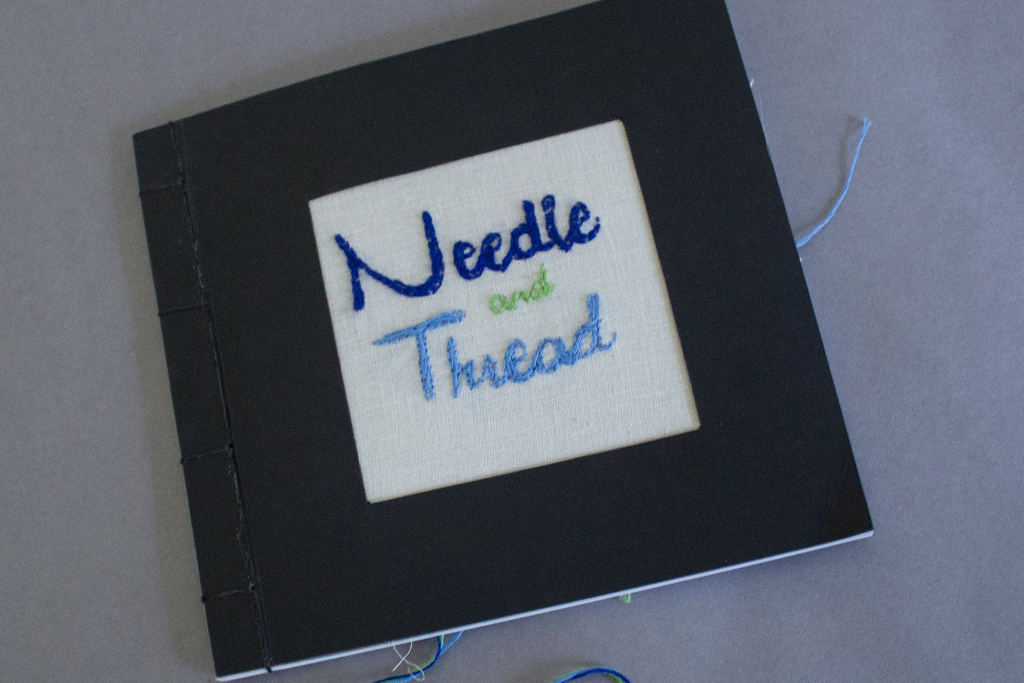 Needle
and
Thread